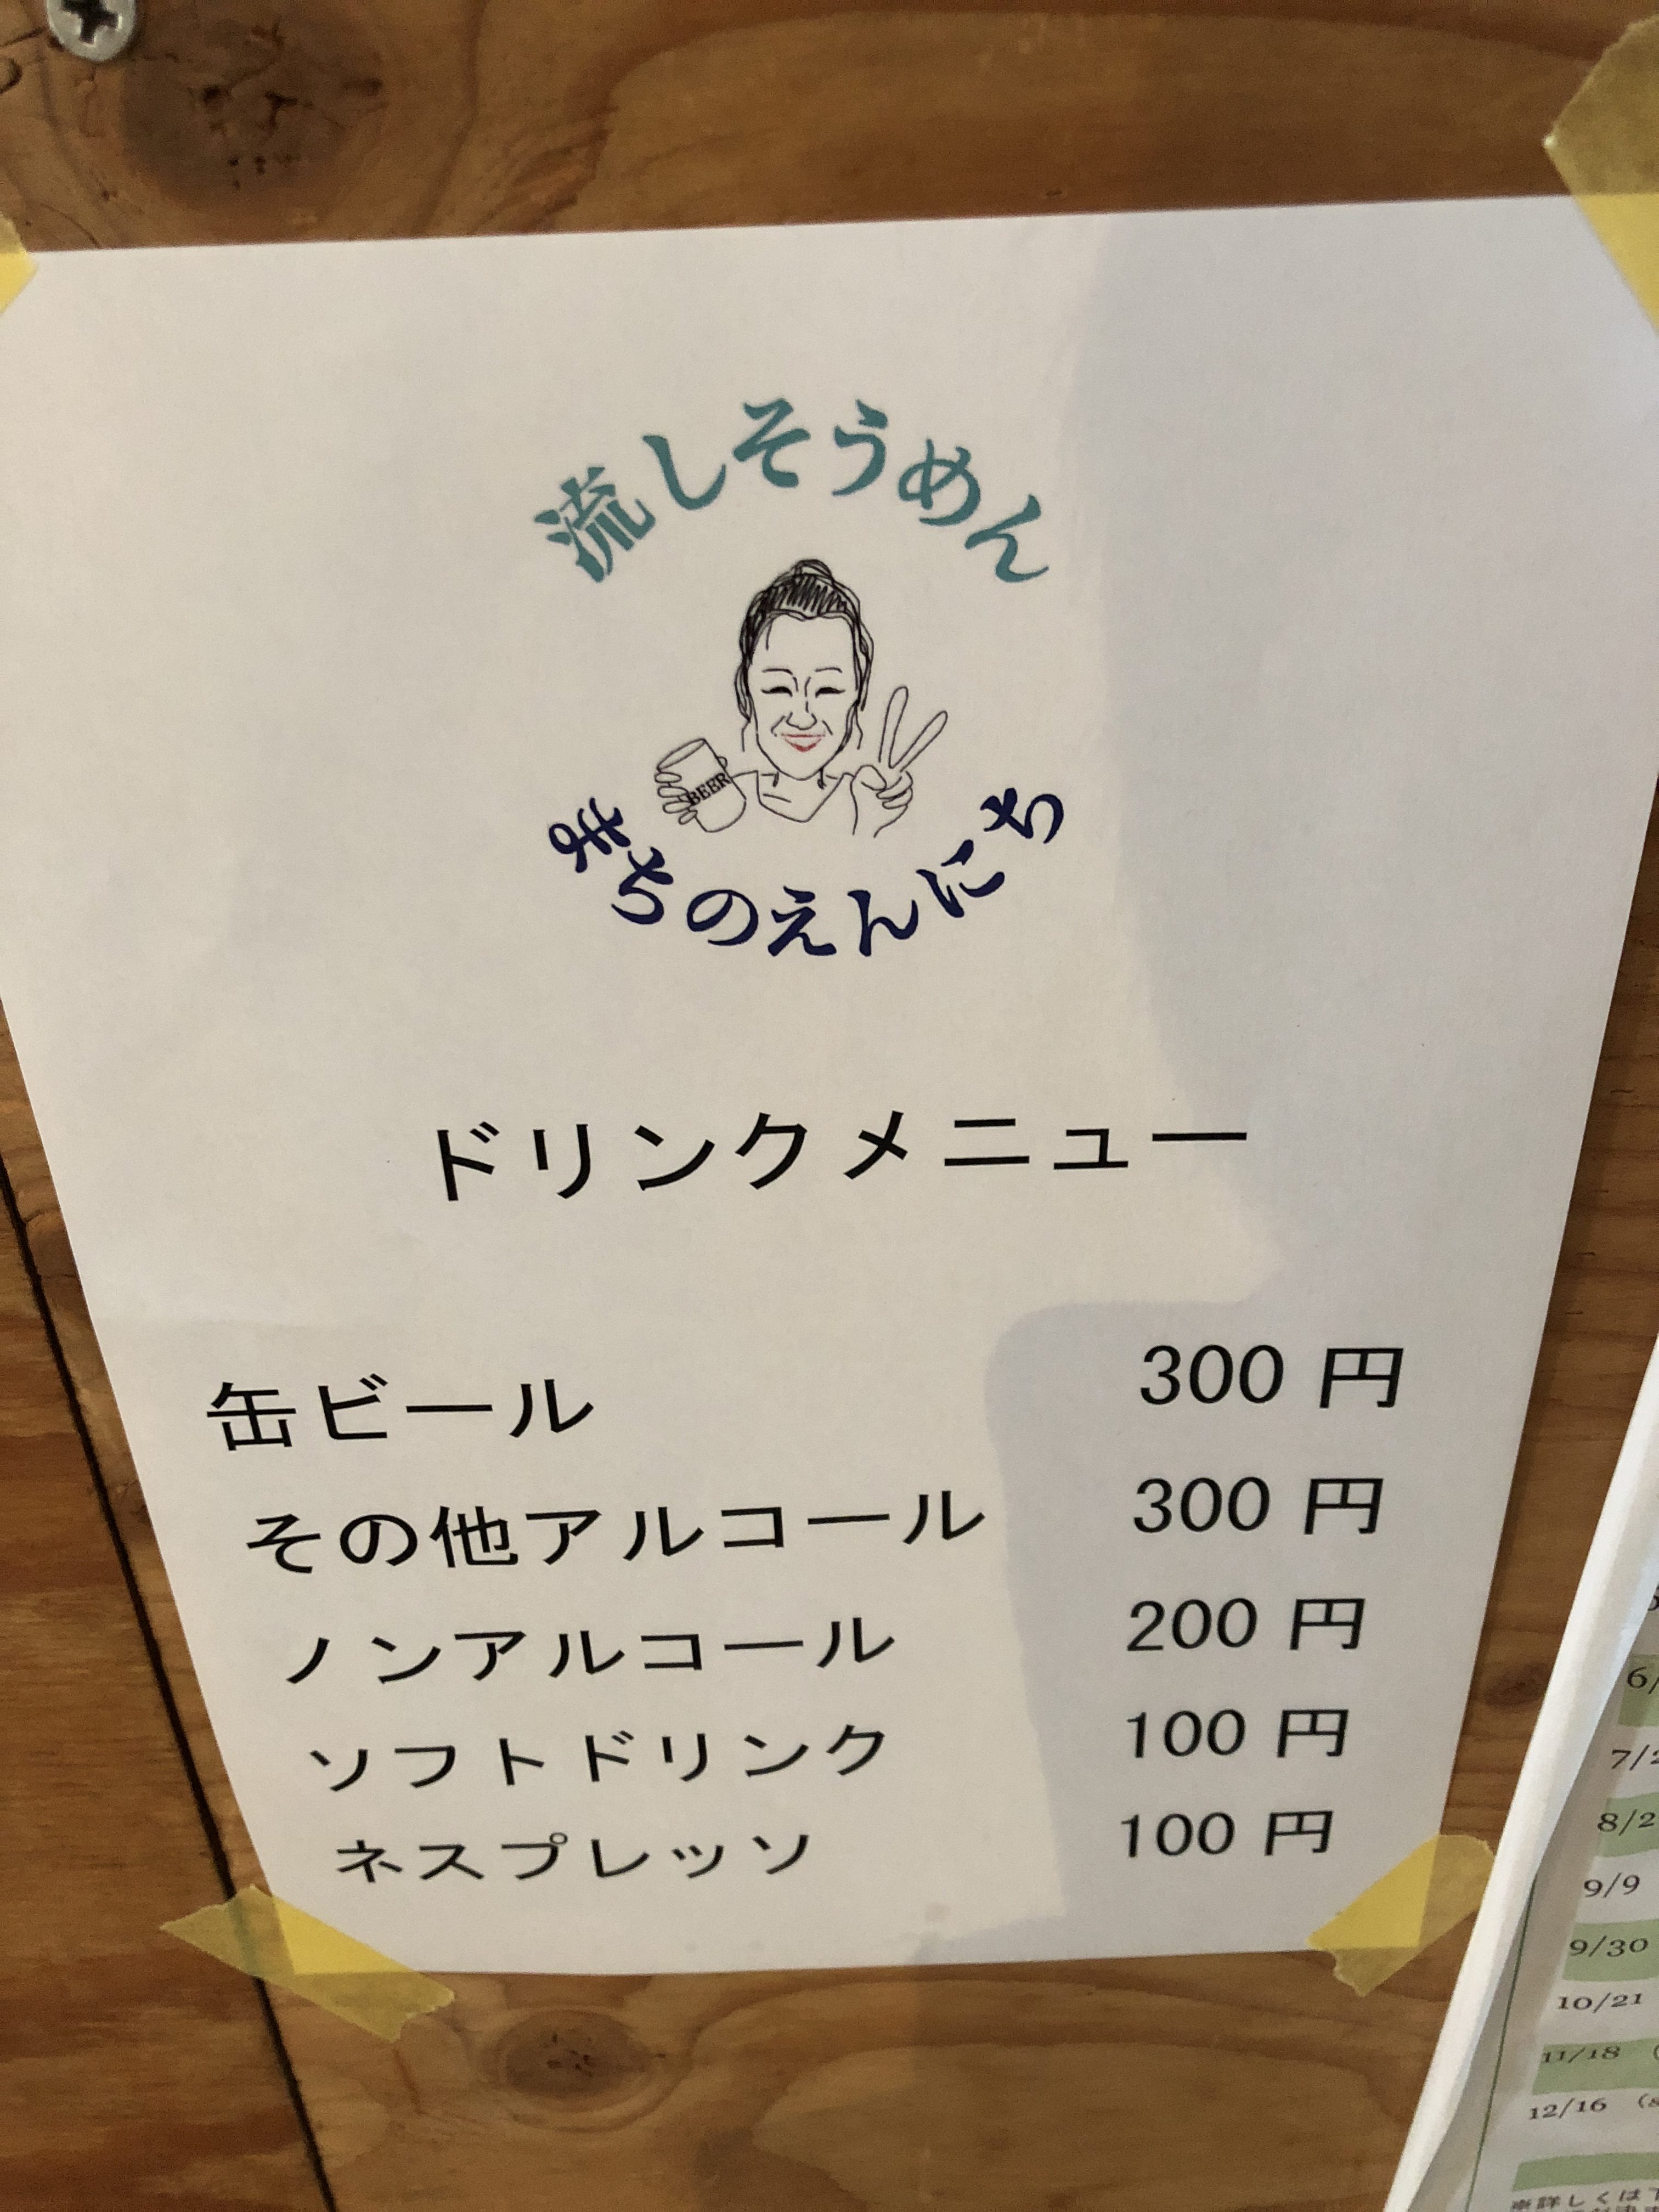 流しそうめん
BEER
まちのえんにち
ドリンクメニュー
缶ビール 300 円
その他アルコール 300 円
ノンアルコール 200 円
ソフトドリンク 100 円
ネスプレッソ 100 円
6/
7/2
8/2
9/9
9/30
10/21
11/18 (
12/16 (s
※詳しくは